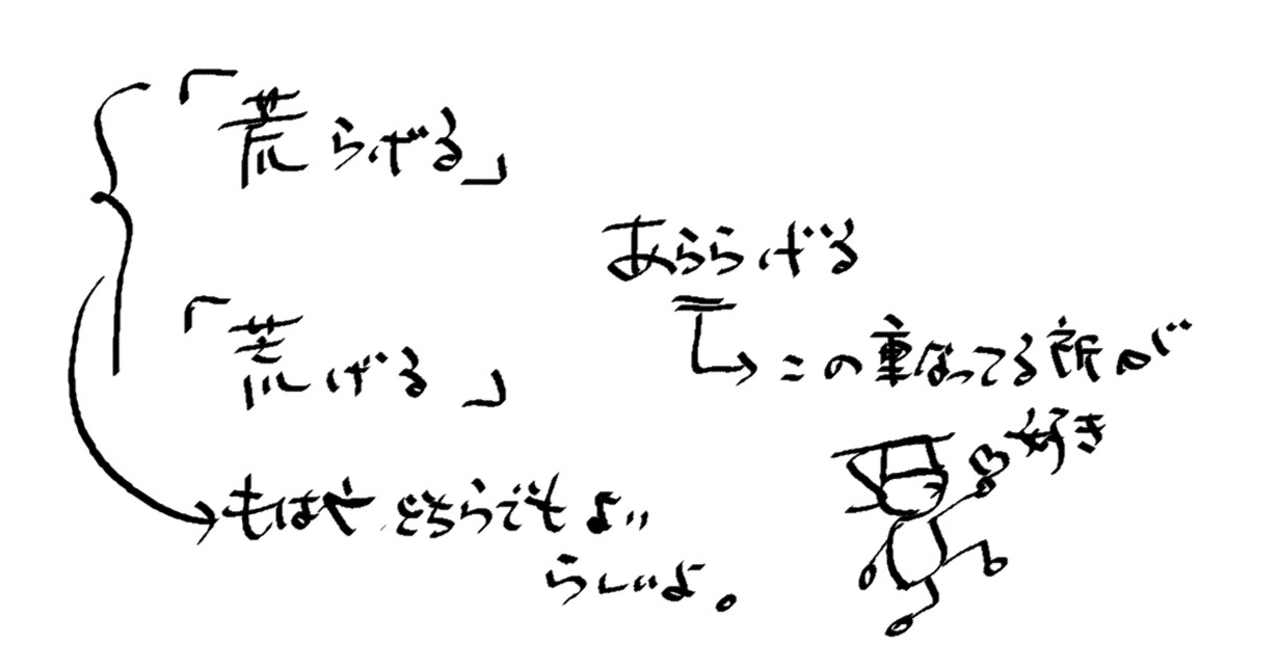 「荒らげる」
あららげる
「荒げる」
この重なってる所が
好き
もはやどちらでもよい
らしいよ。